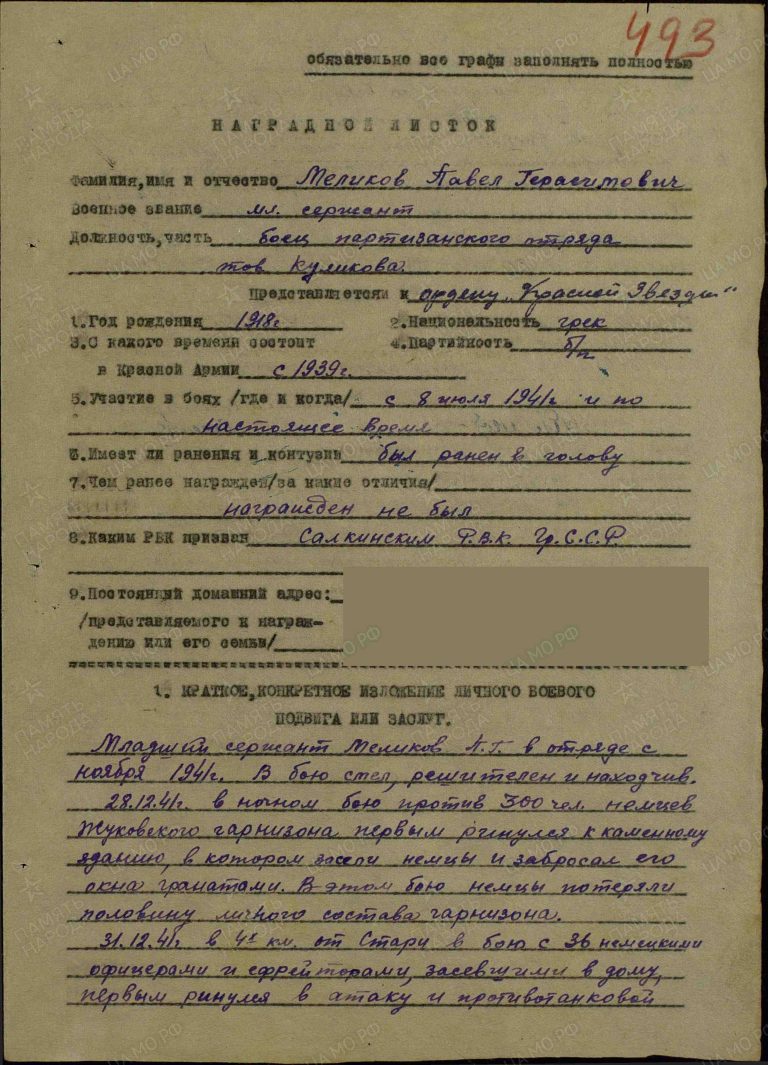 493
обязательно все графы заполнять полностью
НАГРАДНОЙ ЛИСТОК
Фамилия,имя и отчество Меликов Павел Герасимович
Военное звание мл. сержант
Должность,часть боец партизанского отряда
тов Куликова
Представляется к ордену „Красной Звезды"
1.Год рождения 1918г. 2.Национальность грек
3.С какого времени состоит 4.Партийность б/п
в Красной Армии с 1939г.
5.Участие в боях /где и когда/ с 8 июля 1941г и по
настоящее время
6.Имеет ли ранения и контузии был ранен в голову
7.Чем ранее награжден/за какие отличия/
награжден не был
8.Каким РВК призван Салкинским Р.В.К. Гр.С.С.Р.
9.Постоянный домашний адрес:
/представляемого к награж-
дению или его семьи/
1. КРАТКОЕ,КОНКРЕТНОЕ ИЗЛОЖЕНИЕ ЛИЧНОГО БОЕВОГО
ПОДВИГА ИЛИ ЗАСЛУГ.
Младший сержант Меликов П.Г. в отряде с
ноября 1941г. В бою смел, решителен и находчив.
28.12.41г. в ночном бою против 300 чел. немцев
Жуковского гарнизона первым ринулся к каменному
зданию, в котором засели немцы и забросал его
окна гранатами. В этом бою немцы потеряли
половину личного состава гарнизона.
31.12.41г. в 4х км. от Стари в бою с 36 немецкими
офицерами и ефрейторами, засевшими в дому,
первым ринулся в атаку и противотанковой